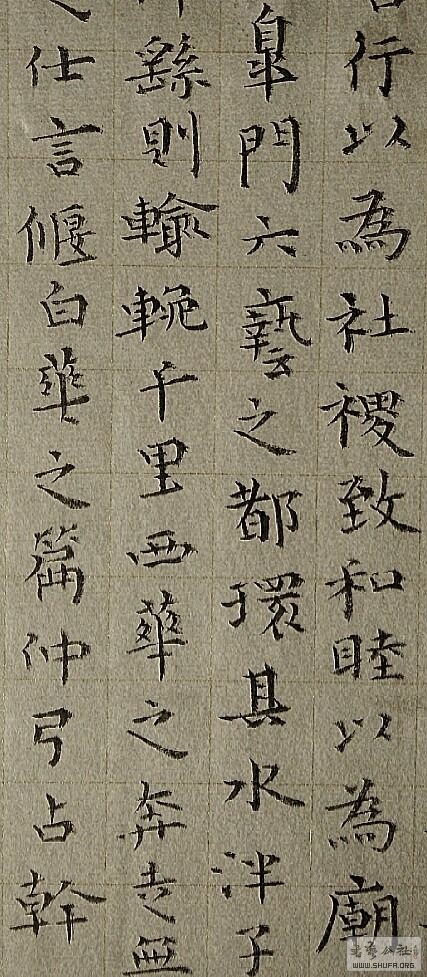 行以為社禝致和睦以為廟
皐門六藝之都環其水泮子
繇則輸輓千里西華之奔走無
之仕言偃白華之篇仲弓占幹
书艺公社
WWW.SHUFA.ORG